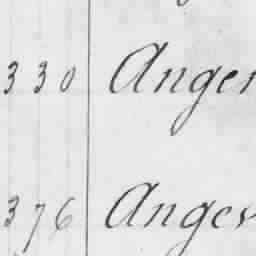 330 Anger
376 Anger